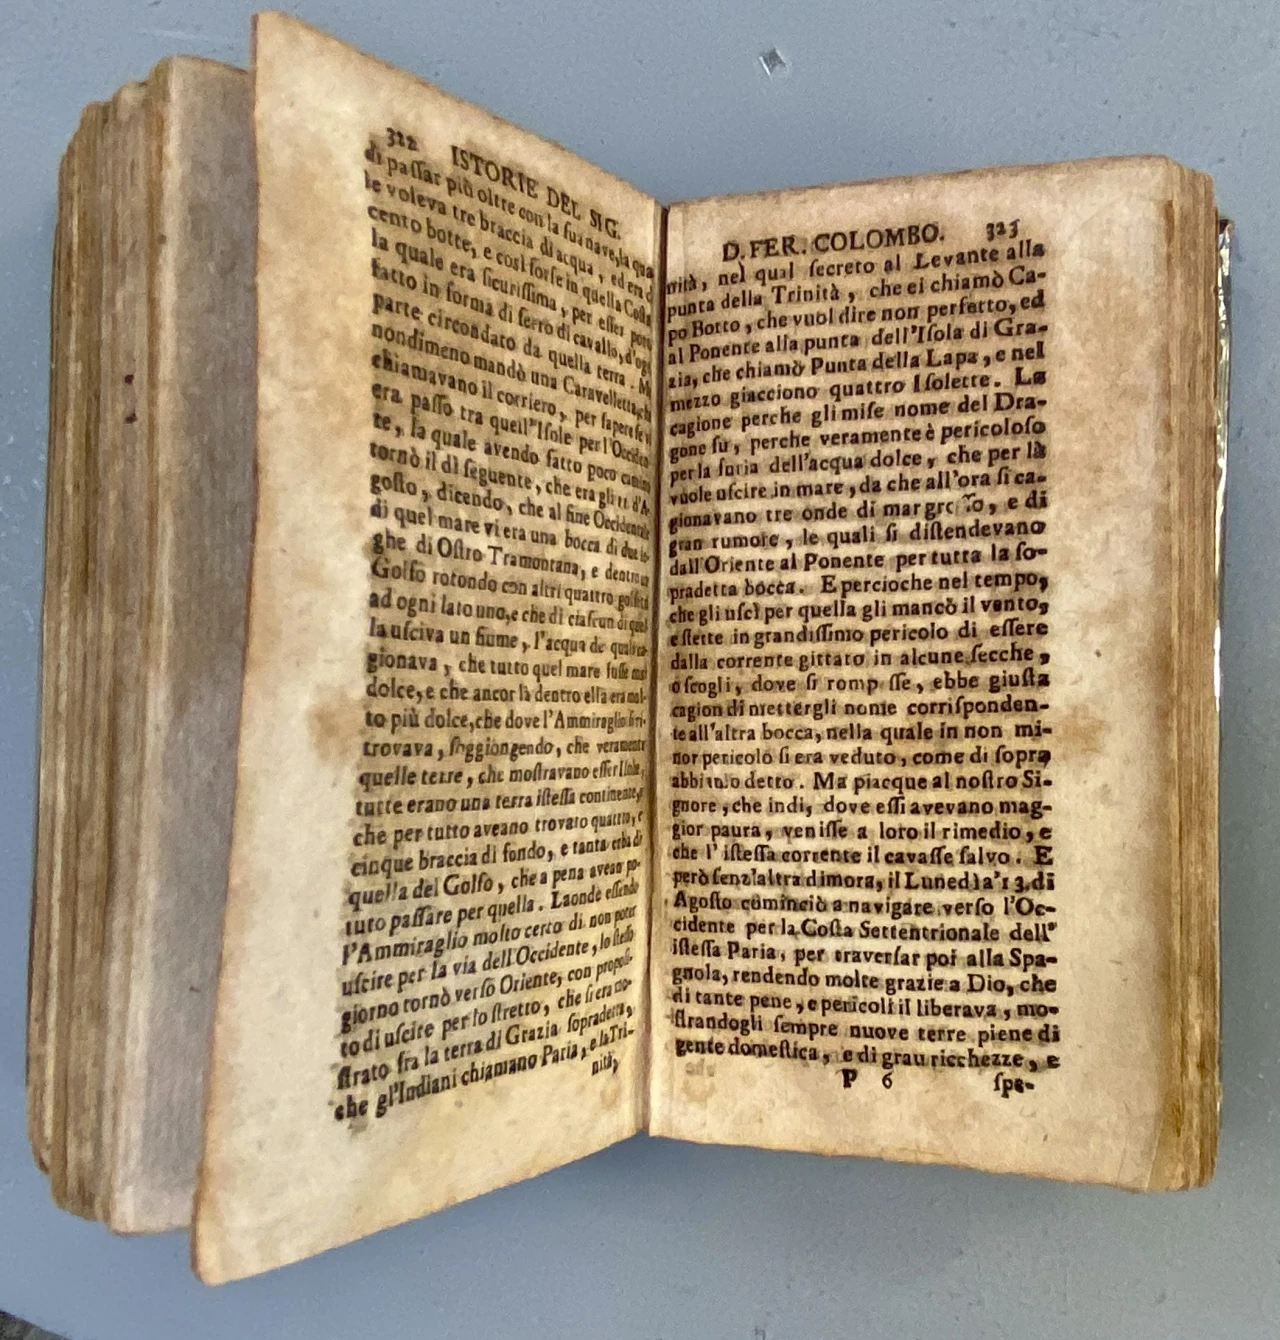 322 ISTORIE DEL SIG.
di paſſar più oltre con la ſua nave, la qua
le voleva tre braccia di acqua, ed era d
cento botte, e così forſe in quella Coſta
la quale era ſicuriſſima, per eſſer poro
fatto in forma di ferro di cavallo, d'ogi
parte circondato da quella terra. M
nondimeno mandò una Caravelletta, ch
chiamavano il corriero, per ſapere ſe vi
era paſſo tra queil'Iſole per l'Occiden
te, la quale avendo fatto poco camino
tornò il dì ſeguente, che era gli 11 d'A-
goſto, dicendo, che al fine Occidentale
di quel mare vi era una bocca di due le-
ghe di Oſtro Tramontana, e dentro
Golfo rotondo con altri quattro golfetti
ad ogni lato uno, e che di ciaſcun di quel
la uſciva un fiume, l'acqua de quali ca-
gionava, che tutto quel mare fuſſe
dolce, e che ancor là dentro ella era mol-
to più dolce, che dove l'Ammiraglio ſi ri-
trovava, ſoggiongendo, che veramente
quelle terre, che moſtravano eſſer Iſole,
tutte erano una terra iſteſſa continente, e
che per tutto aveano trovato quattro, e
cinque braccia di fondo, e tanta erba di
quella del Golfo, che a pena avean po-
tuto paſſare per quella. Laonde eſſendo
l'Ammiraglio molto certo di non poter
uſcire per la via dell'Occidente, lo ſteſſo
giorno tornò verſo Oriente, con propoſi-
to di uſcire per lo ſtretto, che ſi era mo-
ſtrato fra la terra di Grazia ſopradetta,
che gl'Indiani chiamano Paria, e la Tri-
nità,
D. FER. COLOMBO. 323
nità, nel qual ſecreto al Levante alla
punta della Trinità, che ei chiamò Ca-
po Botto, che vuol dire non perfetto, ed
al Ponente alla punta dell'Iſola di Gra-
zia, che chiamò Punta della Lapa, e nel
mezzo giacciono quattro Iſolette. La
cagione perche gli miſe nome del Dra-
gone fù, perche veramente è pericoloſo
per la furia dell'acqua dolce, che per là
vuole uſcire in mare, da che all'ora ſi ca-
gionavano tre onde di mar groſſo, e di
gran rumore, le quali ſi diſtendevano
dall'Oriente al Ponente per tutta la ſo-
pradetta bocca. E percioche nel tempo,
che gli uſcì per quella gli mancò il vento,
e ſtette in grandiſſimo pericolo di eſſere
dalla corrente gittato in alcune ſecche,
o ſcogli, dove ſi romp ſſe, ebbe giuſta
cagion di mettergli nome corriſponden-
te all'altra bocca, nella quale in non mi-
nor pericolo ſi era veduto, come di ſopra
abbiamo detto. Ma piacque al noſtro Si-
gnore, che indi, dove eſſi avevano mag-
gior paura, veniſſe a loro il rimedio, e
che l'iſteſſa corrente il cavaſſe ſalvo. E
però ſenz'altra dimora, il Lunedì a' 13. di
Agoſto cominciò a navigare verſo l'Oc-
cidente per la Coſta Settentrionale dell'
iſteſſa Paria, per traverſar poi alla Spa-
gnola, rendendo molte grazie a Dio, che
di tante pene, e pericoli il liberava, mo-
ſtrandogli ſempre nuove terre piene di
gente domeſtica, e di grau ricchezze, e
P 6 ſpe-